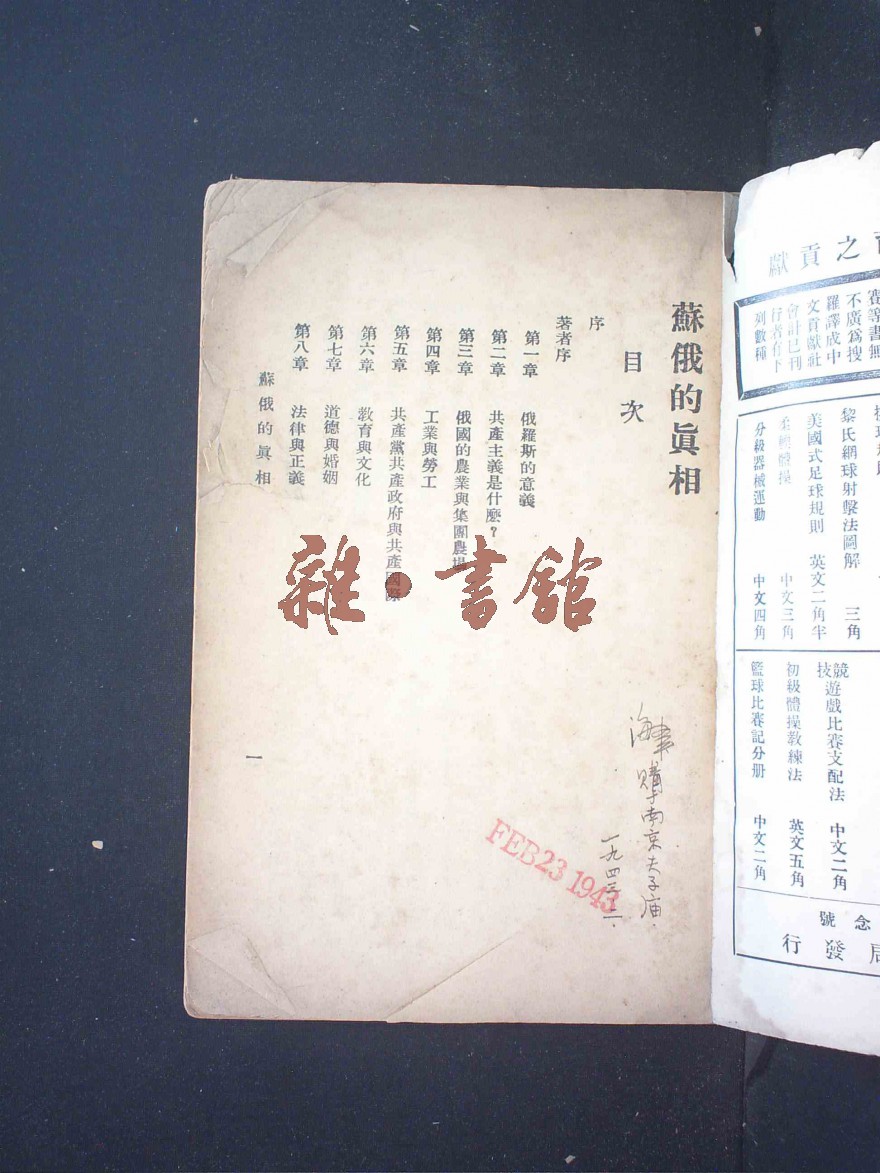 蘇俄的眞相
目次
序
著者序
第一章 俄羅斯的意義
第二章 共產主義是什麼？
第三章 俄國的農業與集團農場
第四章 工業與勞工
第五章 共產黨共產政府與共產國際
第六章 敎育與文化
第七章 道德與婚姻
第八章 法律與正義
蘇俄的眞相
一
雜·書館
購南京夫子庙.
一九四三.二.
FEB 23 1943
之貢獻
不廣爲搜
羅譯成中
文貢獻社
會計已刊
行者有下
列數種
黎氏網球射擊法圖解 三角
美國式足球規則 英文二角半
柔輭體操 中文三角
分級器械運動 中文四角
競技遊戲比賽支配法 中文二角
初級體操敎練法 英文五角
籃球比賽記分册 中文二角
念號
局發行